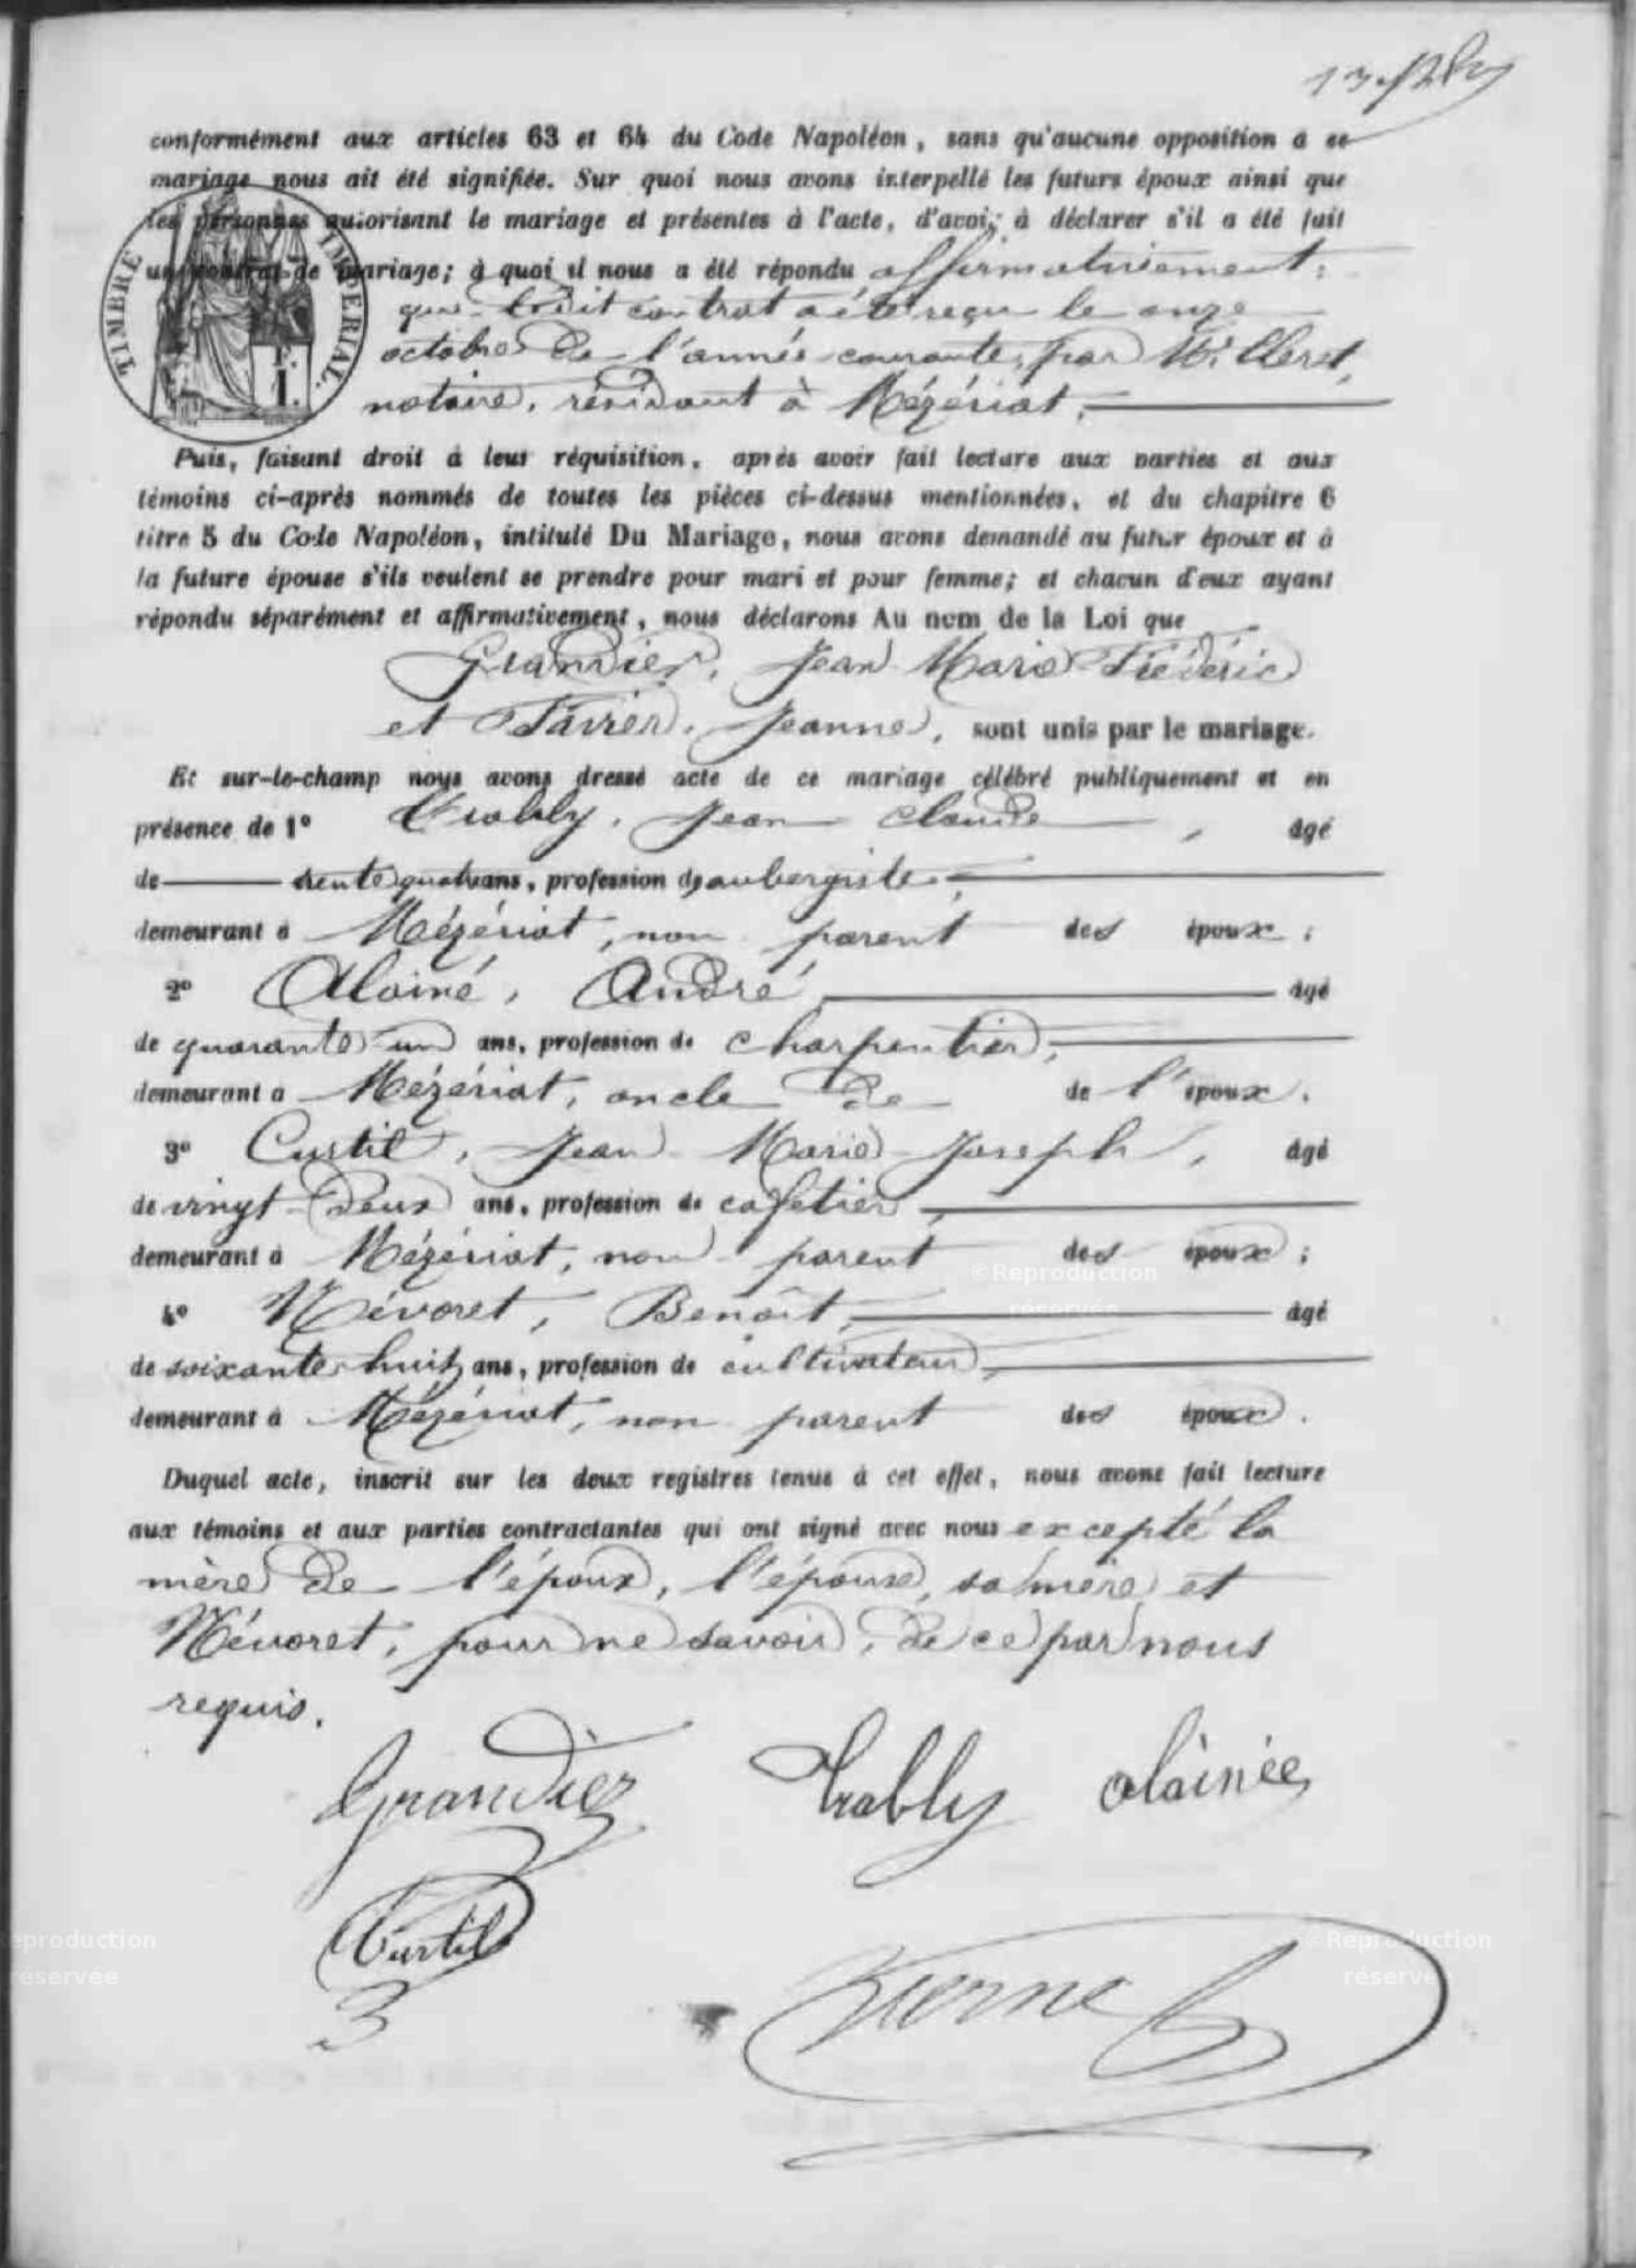 conformément aux articles 63 et 64 du Code Napoléon, sans qu'aucune opposition à ce
mariage nous ait été signifiée. Sur quoi nous avons interpellé les futurs époux ainsi que
les personnes autorisant le mariage et présentes à l'acte, d'avoir à déclarer s'il a été fait
un contrat de mariage; à quoi il nous a été répondu affirmativement:
TIMBRE IMPÉRIAL.
que ledit contrat a été reçu le onze
octobre de l'année courante, par Me Cleret,
notaire, résidant à Mézériat.
Puis, faisant droit à leur réquisition, après avoir fait lecture aux parties et aux
témoins ci-après nommés de toutes les pièces ci-dessus mentionnées, et du chapitre 6
titre 5 du Code Napoléon, intitulé Du Mariage, nous avons demandé au futur époux et à
la future épouse s'ils veulent se prendre pour mari et pour femme; et chacun d'eux ayant
répondu séparément et affirmativement, nous déclarons Au nom de la Loi que
Grandier, Jean Marie Frédéric
et Favier, Jeanne, sont unis par le mariage.
Et sur-le-champ nous avons dressé acte de ce mariage célébré publiquement et en
présence de 1° Trably, Jean Claude, âgé
de trente quatre ans, profession d'aubergiste,
demeurant à Mézériat, non parent des époux;
2° Alainé, André, âgé
de quarante un ans, profession de charpentier,
demeurant à Mézériat, oncle de de l'époux.
3° Curtil, Jean Marie Joseph, âgé
de vingt-deux ans, profession de cafetier,
demeurant à Mézériat, non parent des époux;
4° Névoret, Benoît, âgé
de soixante-huit ans, profession de cultivateur,
demeurant à Mézériat, non parent des époux.
Duquel acte, inscrit sur les deux registres tenus à cet effet, nous avons fait lecture
aux témoins et aux parties contractantes qui ont signé avec nous excepté la
mère de l'époux, l'épouse, sa mère et
Névoret, pour ne savoir, de ce par nous
requis.
Grandier Trably alainée
Curtil
©Reproduction
réservée
©Reproduction
réservée
©Reproduction
réservée